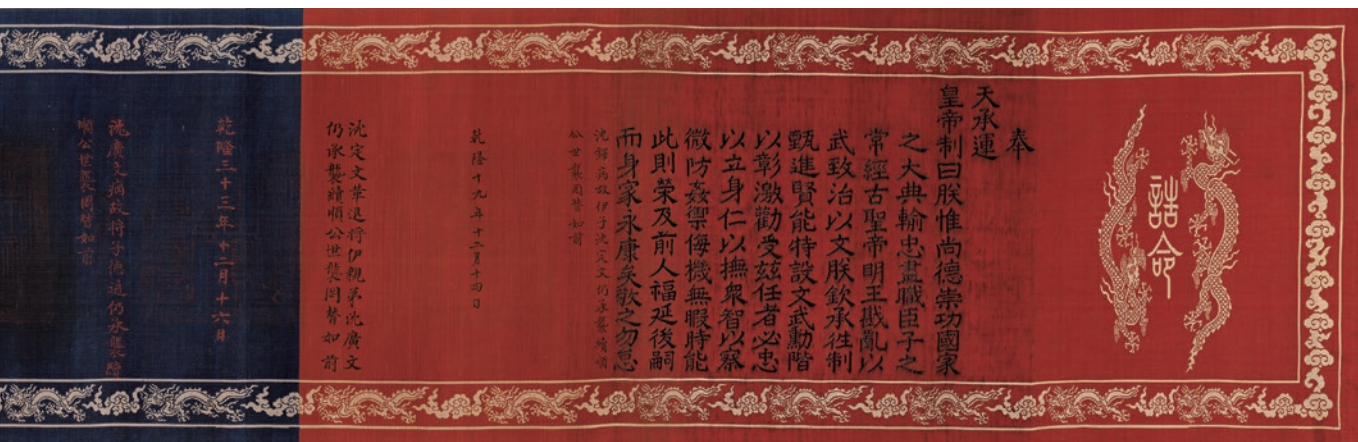 誥命
奉
天承運
皇帝制曰朕惟尚德崇功國家
之大典輸忠盡職臣子之
常經古聖帝明王戡亂以
武致治以文朕欽承往制
甄進賢能特設文武勳階
以彰激勸受茲任者必忠
以立身仁以撫眾智以察
微防姦禦侮機無暇時能
此則榮及前人福延後嗣
而身家永康矣敬之勿怠
沈鐸病故伊子沈定文仍承襲續順
公世襲罔替如前
乾隆十九年十二月十四日
沈定文革退將伊親弟沈廣文
仍承襲續順公世襲罔替如前
乾隆三十三年十二月十六日
沈廣文病故將子德仍承襲續
順公世襲罔替如前